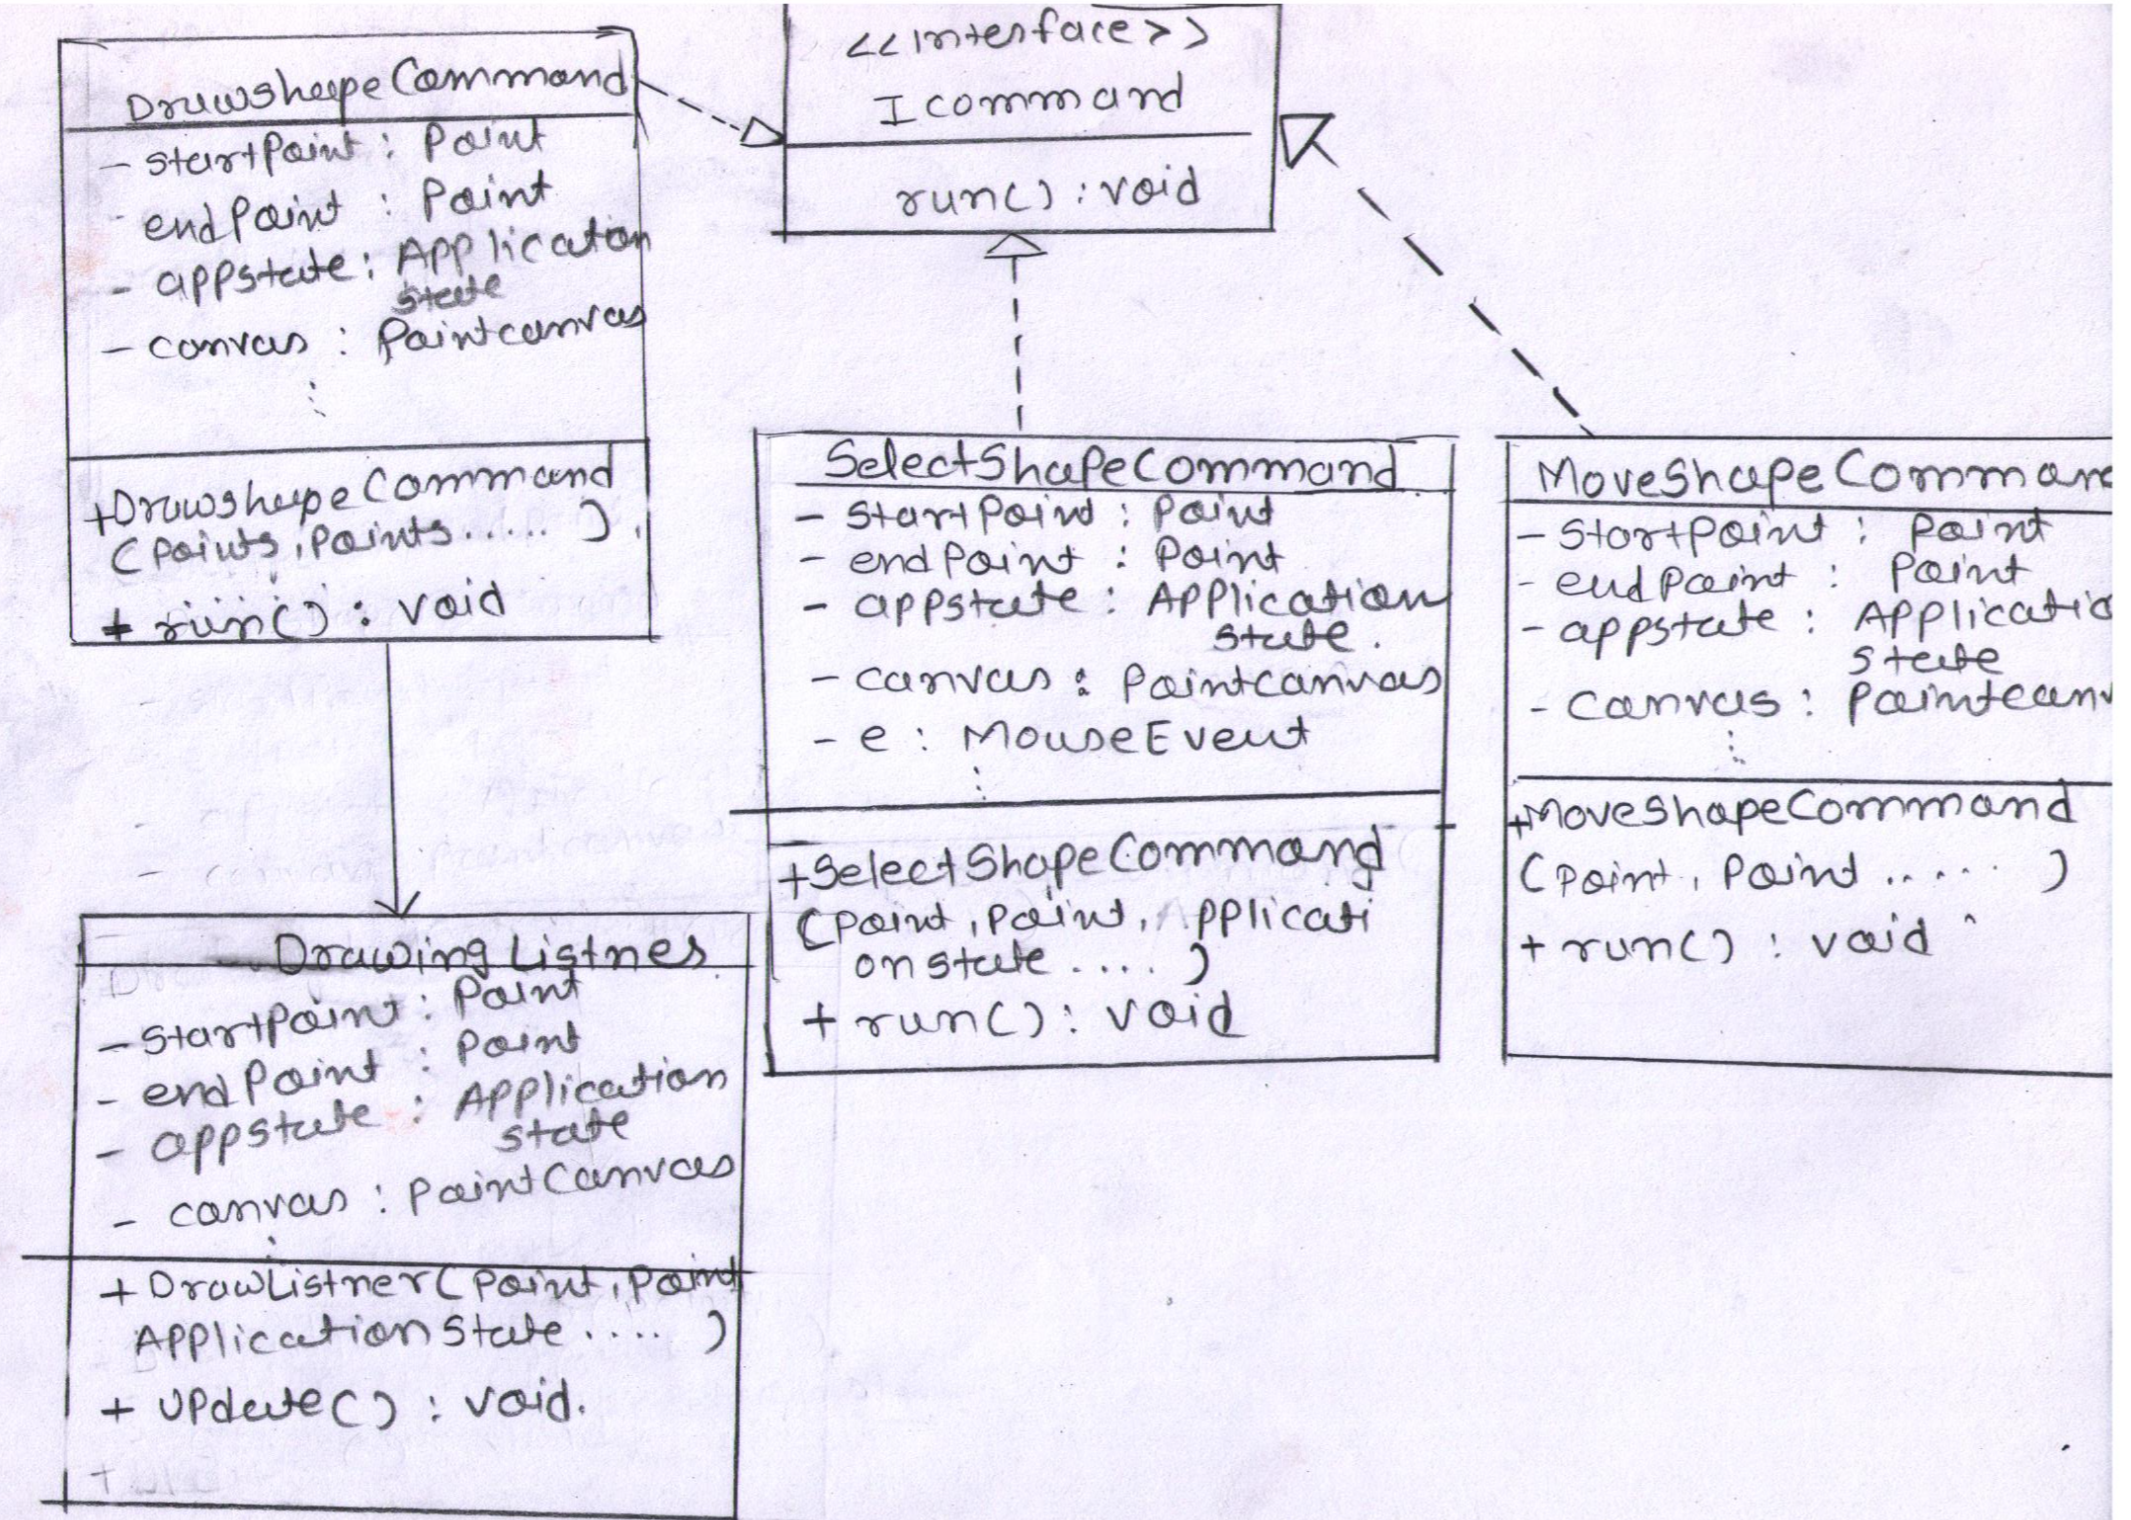 DrawshapeCommand
- startPoint : Point
- endPoint : Point
- appstate : Application
state
- canvas : Paintcanvas
+DrawshapeCommand
(Points, Points ..... )
+ run() : void
<<interface>>
Icommand
run() : void
SelectShapeCommand
- startPoint : Point
- endPoint : Point
- appstate : Application
state.
- canvas : Paintcanvas
- e : MouseEvent
+SelectShapeCommand
(Point, Point, Applicati
onstate .... )
+ run() : void
MoveShapeComman
- StartPoint : Point
- endPoint : Point
- appstate : Applicatio
state
- Canvas : Paintcanv
+MoveShapeCommand
(Point, Point ..... )
+ run() : void
Drawing Listnes
- startPoint : Point
- endPoint : Point
- appstate : Application
state
- canvas : PaintCanvas
+ DrawListner(Point, Point
ApplicationState .... )
+ Update() : void.